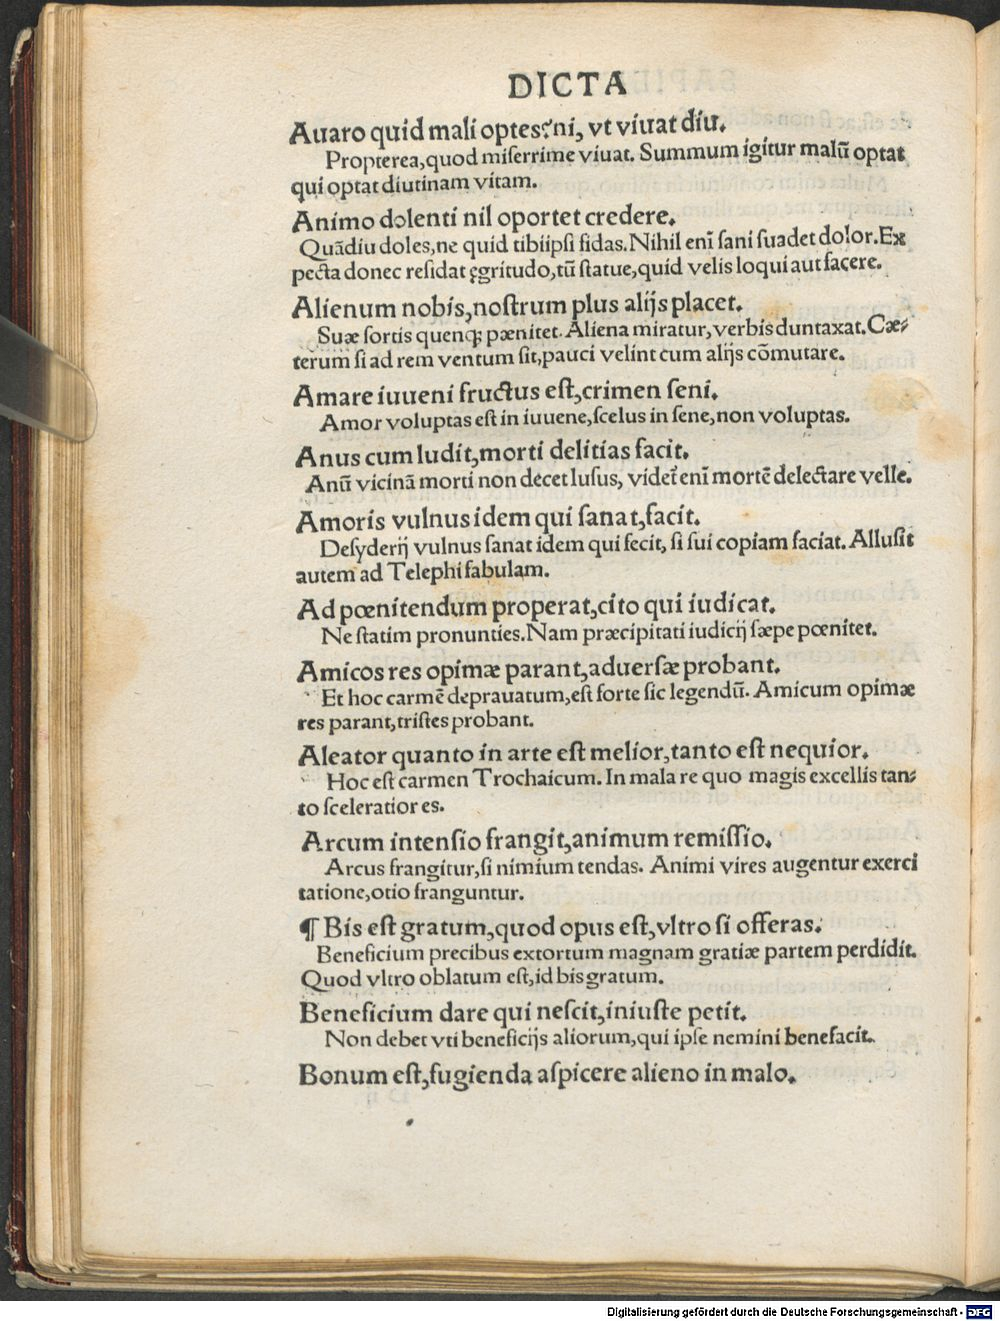 DICTA
Auaro quid mali optes? ni, vt viuat diu.
Propterea, quod miserrime viuat. Summum igitur malū optat
qui optat diutinam vitam.
Animo dolenti nil oportet credere.
Quādiu doles, ne quid tibiipsi fidas. Nihil enī sani suadet dolor. Ex
pecta donec residat ęgritudo, tū statue, quid velis loqui aut facere.
Alienum nobis, nostrum plus alijs placet.
Suæ sortis quenq; pœnitet. Aliena miratur, verbis duntaxat. Cæ⸗
terum si ad rem ventum sit, pauci velint cum alijs cōmutare.
Amare iuueni fructus est, crimen seni.
Amor voluptas est in iuuene, scelus in sene, non voluptas.
Anus cum ludit, morti delitias facit.
Anū vicinā morti non decet lusus, videt̄ enī mortē delectare velle.
Amoris vulnus idem qui sanat, facit.
Desyderij vulnus sanat idem qui fecit, si sui copiam faciat. Allusit
autem ad Telephi fabulam.
Ad pœnitendum properat, cito qui iudicat.
Ne statim pronunties. Nam præcipitati iudicij sæpe pœnitet.
Amicos res opimæ parant, aduersæ probant.
Et hoc carmē deprauatum, est forte sic legendū. Amicum opimæ
res parant, tristes probant.
Aleator quanto in arte est melior, tanto est nequior.
Hoc est carmen Trochaicum. In mala re quo magis excellis tan⸗
to sceleratior es.
Arcum intensio frangit, animum remissio.
Arcus frangitur, si nimium tendas. Animi vires augentur exerci
tatione, otio franguntur.
¶ Bis est gratum, quod opus est, vltro si offeras.
Beneficium precibus extortum magnam gratiæ partem perdidit.
Quod vltro oblatum est, id bis gratum.
Beneficium dare qui nescit, iniuste petit.
Non debet vti beneficijs aliorum, qui ipse nemini benefacit.
Bonum est, fugienda aspicere alieno in malo.
Digitalisierung gefördert durch die Deutsche Forschungsgemeinschaft - DFG